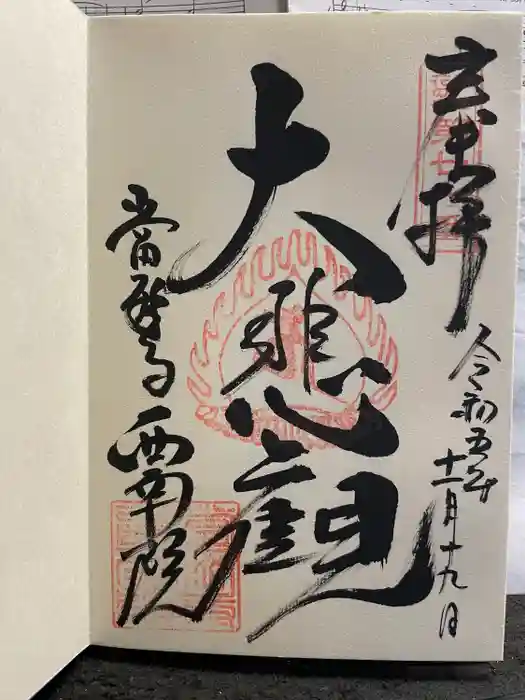 奉拝
令和五年
十一月十九日
大悲観
當麻寺
西南院